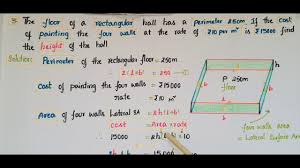 The floor of a rectangular hall has a perimeter 250m. If the cost
of painting the four walls at the rate of ₹10 per m² is ₹15000
find the height of the hall.
Solution: Perimeter of the rectangular floor = 250m
2(l+b) = 250m
Cost of painting the four walls = ₹15000
Rate = ₹10 m²
Area of four walls Lateral SA = 2h(l+b)
Cost = Area × rate
15000 = 2h(l+b) × 10
h
P 250m
floor
b
l
four walls Area =
Lateral Surface A